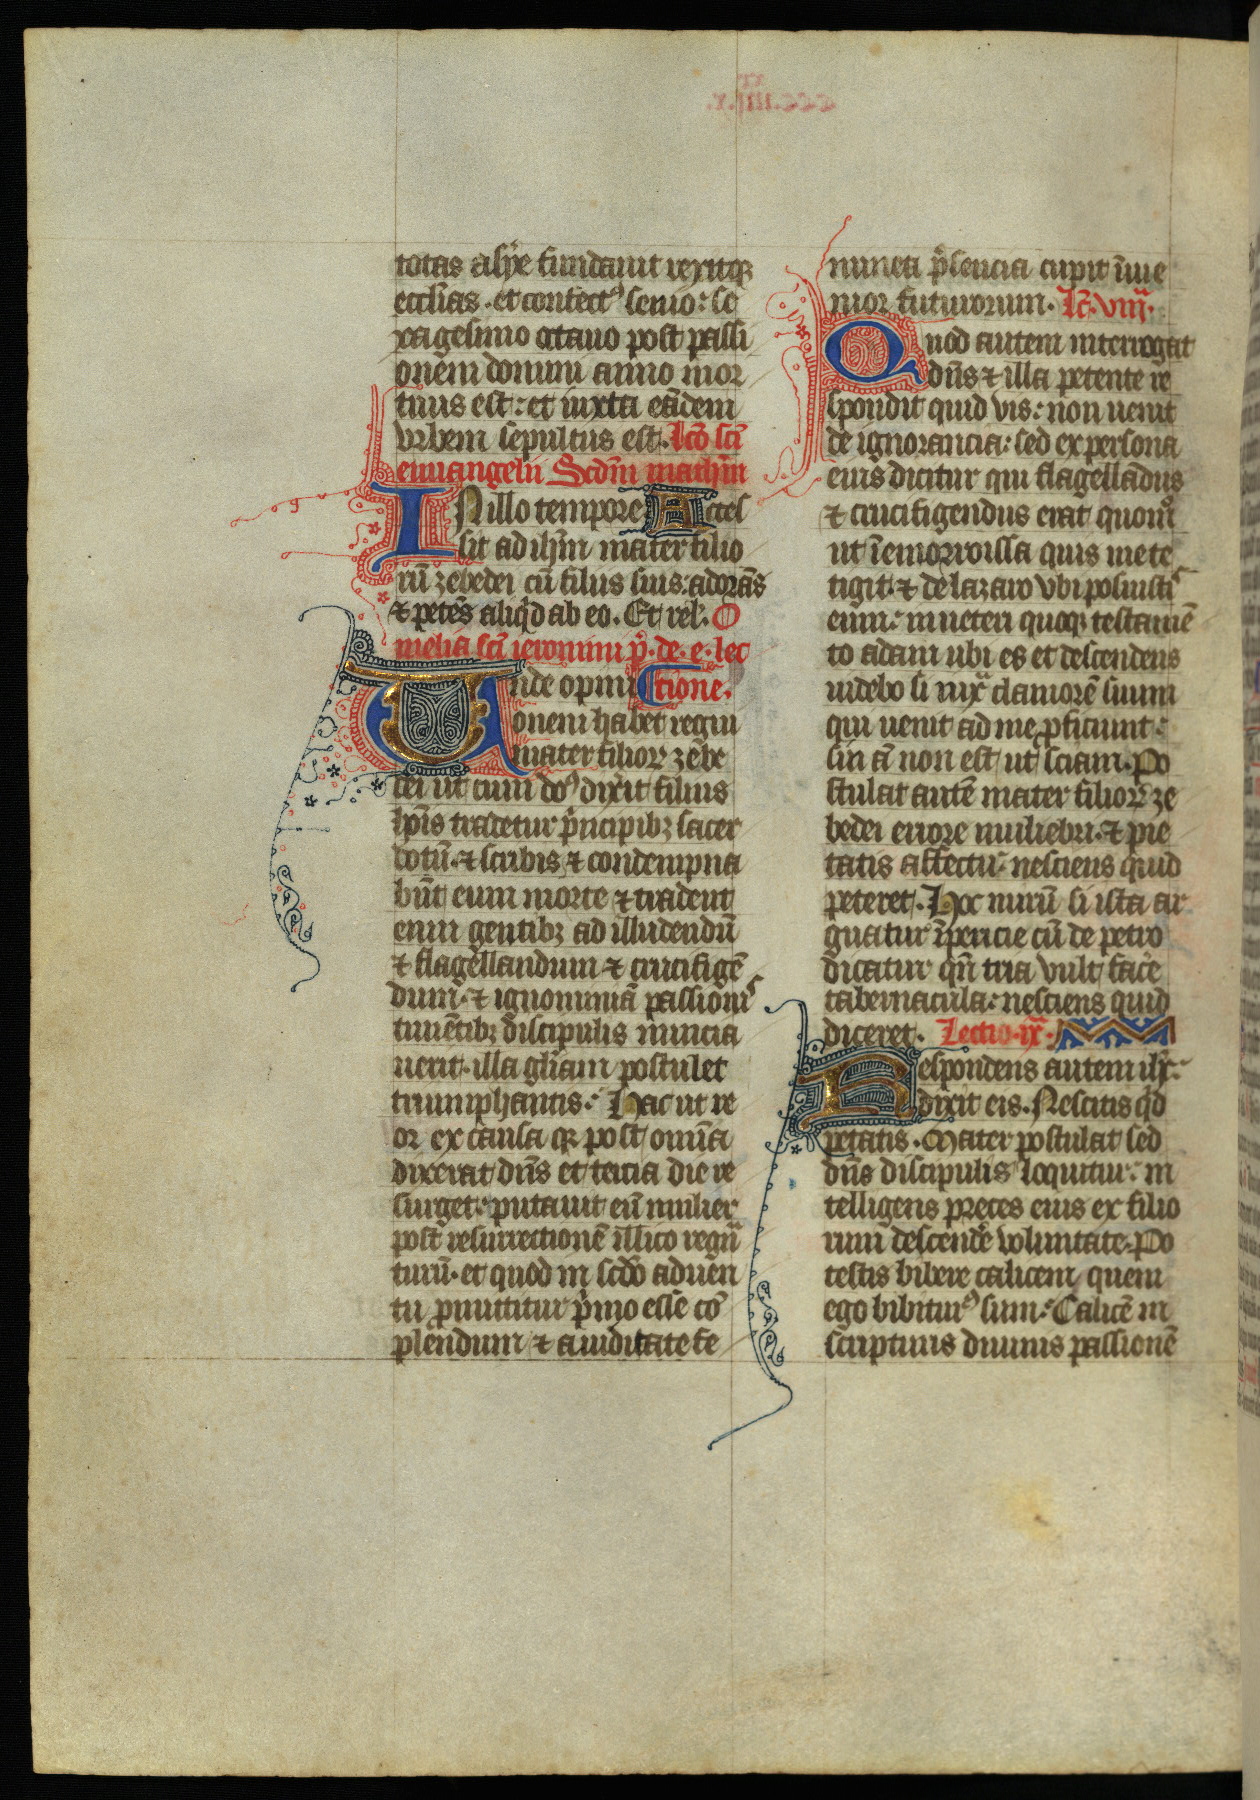 totas asye fundauit rexitqȝ
ecclias. et confectꝰ senio: se
xagesimo octauo post passi
onem domini anno mor
tuus est: et iuxta eādem
vrbem sepultus est. Lcō scī
euuangelii Scdm mathm
IN illo tempore Accec
sit ad ihm mater filio
rū zebedei cū filiis suis. adorās
⁊ petēs aliqd ab eo. Et rel. O
melia scī ieronimi p̄. de. e. lec
Unde opini ctione.
onem habet regni
mater filior zebe
dei ut cum doꝰ dixit filius
hoīs tradetur p̄ncipibȝ sacer
dotū. ⁊ scribis ⁊ condempna
būt eum morte ⁊ tradent
eum gentibȝ ad illudendū
⁊ flagellandum ⁊ crucifigē
dum. ⁊ ignominiā passionis
timētibȝ discipulis nuncia
uerit. illa gliam postulet
triumphantis. Hac ut re
or ex causa qr post omīa
dixerat dns et tercia die re
surget. putauit eū mulier
post resurrectionē illico regn
turū. et quod in scdo aduen
tu promittitur p̄mo esse cō
plendum ⁊ auiditate fe
minea p̄sencia cupit īme
mor futurorum. Lc̄. viii.
Quod autem interrogat
dns ⁊ illa petente re
spondit quid vis: non uenit
de ignorancia: sed ex persona
eius dicitur qui flagellādus
⁊ crucifigendus erat quom̄
ut ī emorroissa quis me te
tigit. ⁊ de lazaro vbi posuisti
eum: in ueteri quoqȝ testamē
to adam ubi es et descendens
uidebo si iux clamorē suum
qui uenit ad me, pficiunt:
sin aū non est, ut sciam. Po
stulat autē mater filior ze
bedei errore muliebri. ⁊ pie
tatis affectu. nesciens quid
peteret. Hoc mirū si ista ar
guatur īpericie cū de petro
dicatur qn̄ tria vult face
tabernacula: nesciens quid
diceret. Lectio. ix.
Respondens autem ihc
dixit eis. Nescitis qd
petatis. Mater postulat sed
dns discipulis loquitur. in
telligens preces eius ex filio
rum descende voluntate. Po
testis bibere calicem, quem
ego bibiturꝰ sum. Calicē in
scripturis diuinis passionē